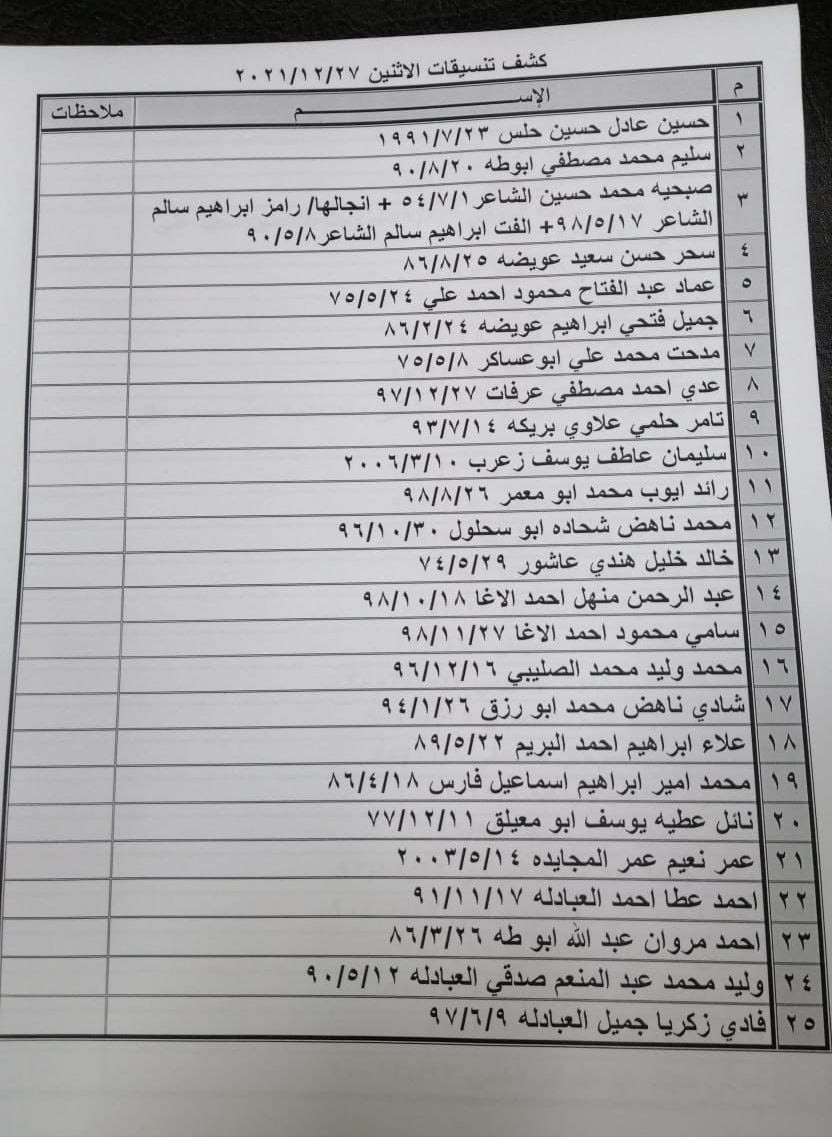 كشف تنسيقات الاثنين ٢٠٢١/١٢/٢٧
م الإســـــــــــــــــــــــــــم ملاحظات
١ حسين عادل حسين حلس ١٩٩١/٧/٢٣
٢ سليم محمد مصطفي ابوطه ٩٠/٨/٢٠
٣ صبحيه محمد حسين الشاعر ٥٤/٧/١ + انجالها/ رامز ابراهيم سالم
الشاعر ٩٨/٥/١٧+ الفت ابراهيم سالم الشاعر٩٠/٥/٨
٤ سحر حسن سعيد عويضه ٨٦/٨/٢٥
٥ عماد عبد الفتاح محمود احمد علي ٧٥/٥/٢٤
٦ جميل فتحي ابراهيم عويضه ٨٦/٢/٢٤
٧ مدحت محمد علي ابوعساكر ٧٥/٥/٨
٨ عدي احمد مصطفي عرفات ٩٧/١٢/٢٧
٩ تامر حلمي علاوي بريكه ٩٣/٧/١٤
١٠ سليمان عاطف يوسف زعرب ٢٠٠٦/٣/١٠
١١ رائد ايوب محمد ابو معمر ٩٨/٨/٢٦
١٢ محمد ناهض شحاده ابو سحلول ٩٦/١٠/٣٠
١٣ خالد خليل هندي عاشور ٧٤/٥/٢٩
١٤ عبد الرحمن منهل احمد الاغا ٩٨/١٠/١٨
١٥ سامي محمود احمد الاغا ٩٨/١١/٢٧
١٦ محمد وليد محمد الصليبي ٩٦/١٢/١٦
١٧ شادي ناهض محمد ابو رزق ٩٤/١/٢٦
١٨ علاء ابراهيم احمد البريم ٨٩/٥/٢٢
١٩ محمد امير ابراهيم اسماعيل فارس ٨٦/٤/١٨
٢٠ نائل عطيه يوسف ابو معيلق ٧٧/١٢/١١
٢١ عمر نعيم عمر المجايده ٢٠٠٣/٥/١٤
٢٢ احمد عطا احمد العبادله ٩١/١١/١٧
٢٣ احمد مروان عبد الله ابو طه ٨٦/٣/٢٦
٢٤ وليد محمد عبد المنعم صدقي العبادله ٩٠/٥/١٢
٢٥ فادي زكريا جميل العبادله ٩٧/٦/٩